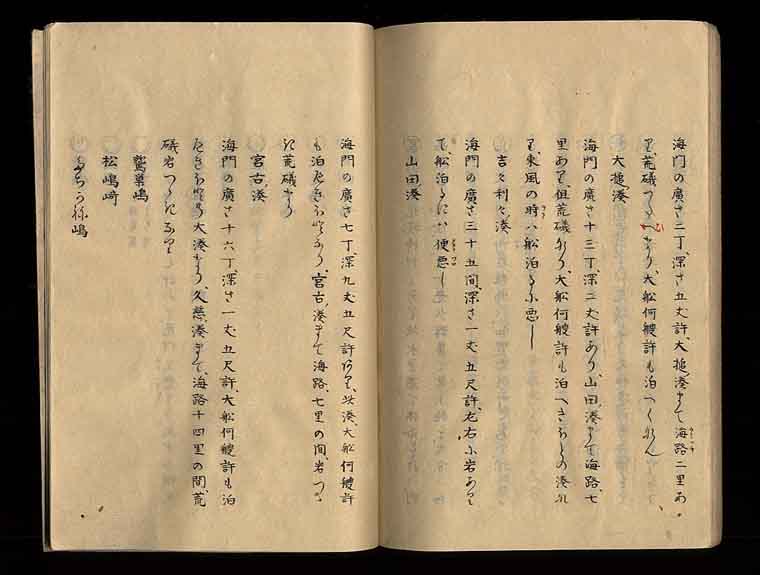 海門の廣さ二丁、深さ五丈許、大槌湊まて海路二里あ
り、荒礒つゝきなり、大船何艘許も泊へくなん
大槌湊
海門の廣さ十三丁、深二丈許あり、山田湊まて海路、七
里あり、但荒礒なり、大船何艘許も泊へきほとの湊なれ
と、東風の時ハ船泊るに悪し
吉々利々湊
海門の廣さ三十五間、深さ一丈五尺許、左右に岩あり
て、船泊るにハ便悪し
山田湊
海門の廣さ七丁、深九丈五尺許なり、此湊、大船何艘許
も泊へきほとなり、宮古湊まて海路、七里の間、岩つゝ
き荒礒なり
宮古湊
海門の廣さ十六丁、深さ一丈五尺許、大船何艘許も泊
へきほとの大湊なり、久慈湊まて、海路十四里の間、荒
礒岩つゝきなり
鷲巣嶋
松嶋崎
嶋